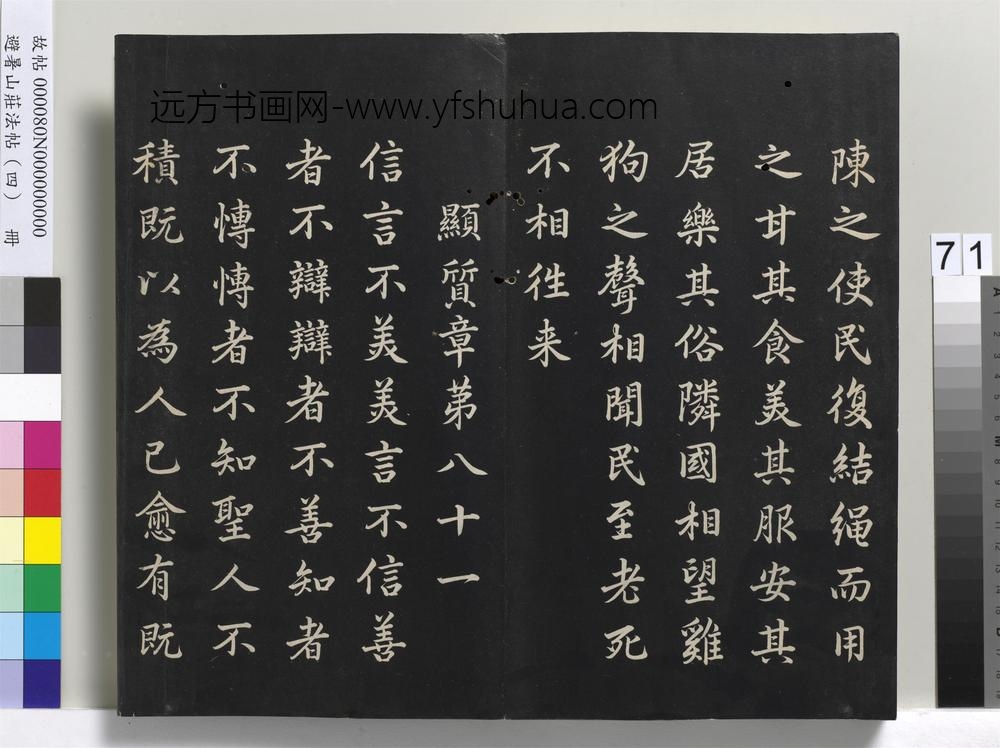 陳之使民復結繩而用
之甘其食美其服安其
居樂其俗隣國相望雞
狗之聲相聞民至老死
不相徃来
顯質章第八十一
信言不美美言不信善
者不辯辯者不善知者
不慱慱者不知聖人不
積既以為人已愈有既
远方书画网-www.yfshuhua.com
故帖 000080N000000000
避暑山莊法帖(四) 冊
71